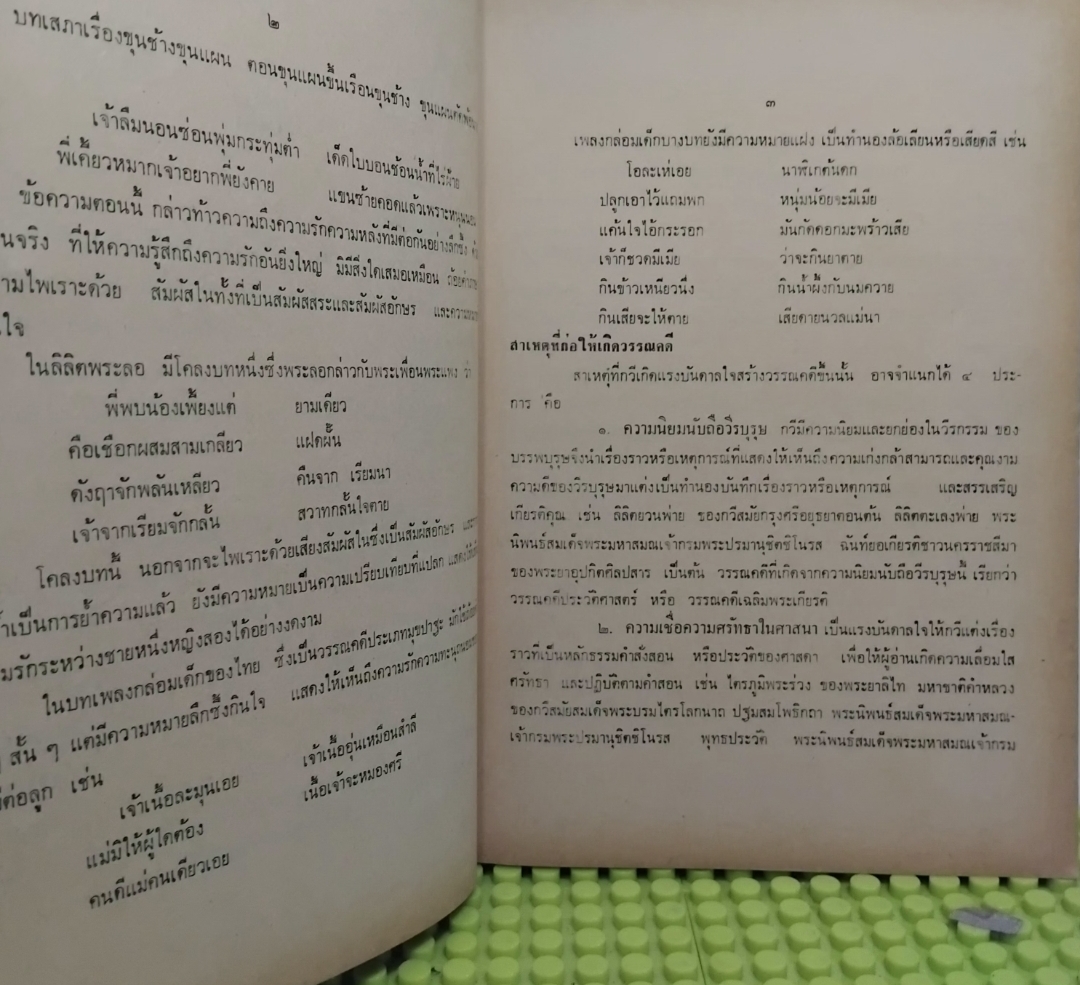 ๒
บทเสภาเรื่องขุนช้างขุนแผน ตอนขุนแผนขึ้นเรือนขุนช้าง
เจ้าลืมนอนซ่อนพุ่มกระทุ่มต่ำ เด็ดใบบอนช้อนน้ำที่ไร่ฝ้าย
พี่เคี้ยวหมากเจ้าอยากพี่ยังคาย แขนซ้ายคอดแล้วเพราะหนุนนอน
ข้อความตอนนี้ กล่าวท้าวความถึงความรักความหลังที่มีต่อกันอย่างลึกซึ้ง
นจริง ที่ให้ความรู้สึกถึงความรักอันยิ่งใหญ่ มิมีสิ่งใดเสมอเหมือน
ามไพเราะด้วย สัมผัสในทั้งที่เป็นสัมผัสสระและสัมผัสอักษร
นใจ
ในลิลิตพระลอ มีโคลงบทหนึ่งซึ่งพระลอกล่าวกับพระเพื่อนพระแพง ว่า
พี่พบน้องเพี้ยงแต่ ยามเดียว
คือเชือกผสมสามเกลียว แฝดฝั้น
ดังฤๅจักพลันเหลียว คืนจาก เรียมนา
เจ้าจากเรียมจักกลั้น สวาทกลั้นใจตาย
โคลงบทนี้ นอกจากจะไพเราะด้วยเสียงสัมผัสในซึ่งเป็นสัมผัสอักษร
ำเป็นการย้ำความแล้ว ยังมีความหมายเป็นความเปรียบเทียบที่แปลก
มรักระหว่างชายหนึ่งหญิงสองได้อย่างงดงาม
ในบทเพลงกล่อมเด็กของไทย ซึ่งเป็นวรรณคดีประเภทมุขปาฐะ
สั้น ๆ แต่มีความหมายลึกซึ้งกินใจ แสดงให้เห็นถึงความรักความทะนุถนอม
ต่อลูก เช่น
เจ้าเนื้อละมุนเอย เจ้าเนื้ออุ่นเหมือนสำลี
แม่มิให้ผู้ใดต้อง เนื้อเจ้าจะหมองศรี
คนดีแม่คนเดียวเอย
๓
เพลงกล่อมเด็กบางบทยังมีความหมายแฝง เป็นทำนองล้อเลียนหรือเสียดสี เช่น
โอละเห่เอย นาฬิเกต้นตก
ปลูกเอาไว้แถมพก หนุ่มน้อยจะมีเมีย
แค้นใจไอ้กระรอก มันกัดดอกมะพร้าวเสีย
เจ้าก็ชวดมีเมีย ว่าจะกินยาตาย
กินข้าวเหนียวนึ่ง กินน้ำผึ้งกับนมควาย
กินเสียจะให้ตาย เสียดายนวลแม่นา
สาเหตุที่ก่อให้เกิดวรรณคดี
สาเหตุที่กวีเกิดแรงบันดาลใจสร้างวรรณคดีขึ้นนั้น อาจจำแนกได้ ๔ ประ-
การ คือ
๑. ความนิยมนับถือวีรบุรุษ กวีมีความนิยมและยกย่องในวีรกรรม ของ
บรรพบุรุษจึงนำเรื่องราวหรือเหตุการณ์ที่แสดงให้เห็นถึงความเก่งกล้าสามารถและคุณงาม
ความดีของวีรบุรุษมาแต่งเป็นทำนองบันทึกเรื่องราวหรือเหตุการณ์ และสรรเสริญ
เกียรติคุณ เช่น ลิลิตยวนพ่าย ของกวีสมัยกรุงศรีอยุธยาตอนต้น ลิลิตตะเลงพ่าย พระ
นิพนธ์สมเด็จพระมหาสมณเจ้ากรมพระปรมานุชิตชิโนรส ฉันท์ยอเกียรติชาวนครราชสีมา
ของพระยาอุปกิตศิลปสาร เป็นต้น วรรณคดีที่เกิดจากความนิยมนับถือวีรบุรุษนี้ เรียกว่า
วรรณคดีประวัติศาสตร์ หรือ วรรณคดีเฉลิมพระเกียรติ
๒. ความเชื่อความศรัทธาในศาสนา เป็นแรงบันดาลใจให้กวีแต่งเรื่อง
ราวที่เป็นหลักธรรมคำสั่งสอน หรือประวัติของศาสดา เพื่อให้ผู้อ่านเกิดความเลื่อมใส
ศรัทธา และปฏิบัติตามคำสอน เช่น ไตรภูมิพระร่วง ของพระยาลิไท มหาชาติคำหลวง
ของกวีสมัยสมเด็จพระบรมไตรโลกนาถ ปฐมสมโพธิกถา พระนิพนธ์สมเด็จพระมหาสมณ-
เจ้ากรมพระปรมานุชิตชิโนรส พุทธประวัติ พระนิพนธ์สมเด็จพระมหาสมณเจ้ากรม